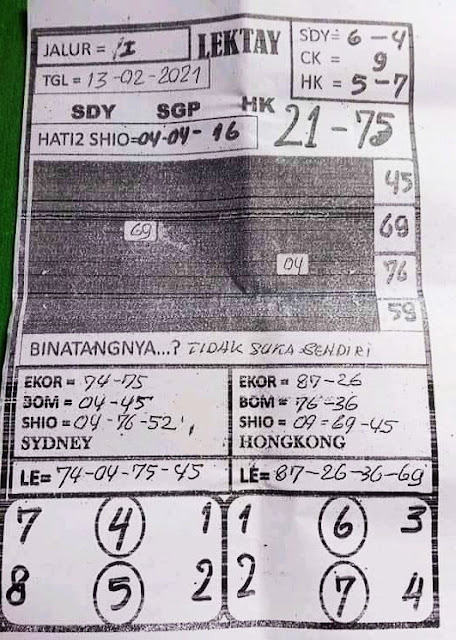 JALUR = II
LEKTAY
SDY= 6-4
CK = 9
HK = 5-7
TGL = 13-02-2021
SDY SGP HK 21-75
HATI2 SHIO=04-04-16
45
69
69
04
76
59
BINATANGNYA...? TIDAK SUKA SENDIRI
EKOR = 74-75
BOM = 04-45
SHIO = 04-76-52
SYDNEY
EKOR = 87-26
BOM = 76-36
SHIO = 09-69-45
HONGKONG
LE= 74-04-75-45
LE= 87-26-36-69
7 4 1
8 5 2
1 6 3
2 7 4